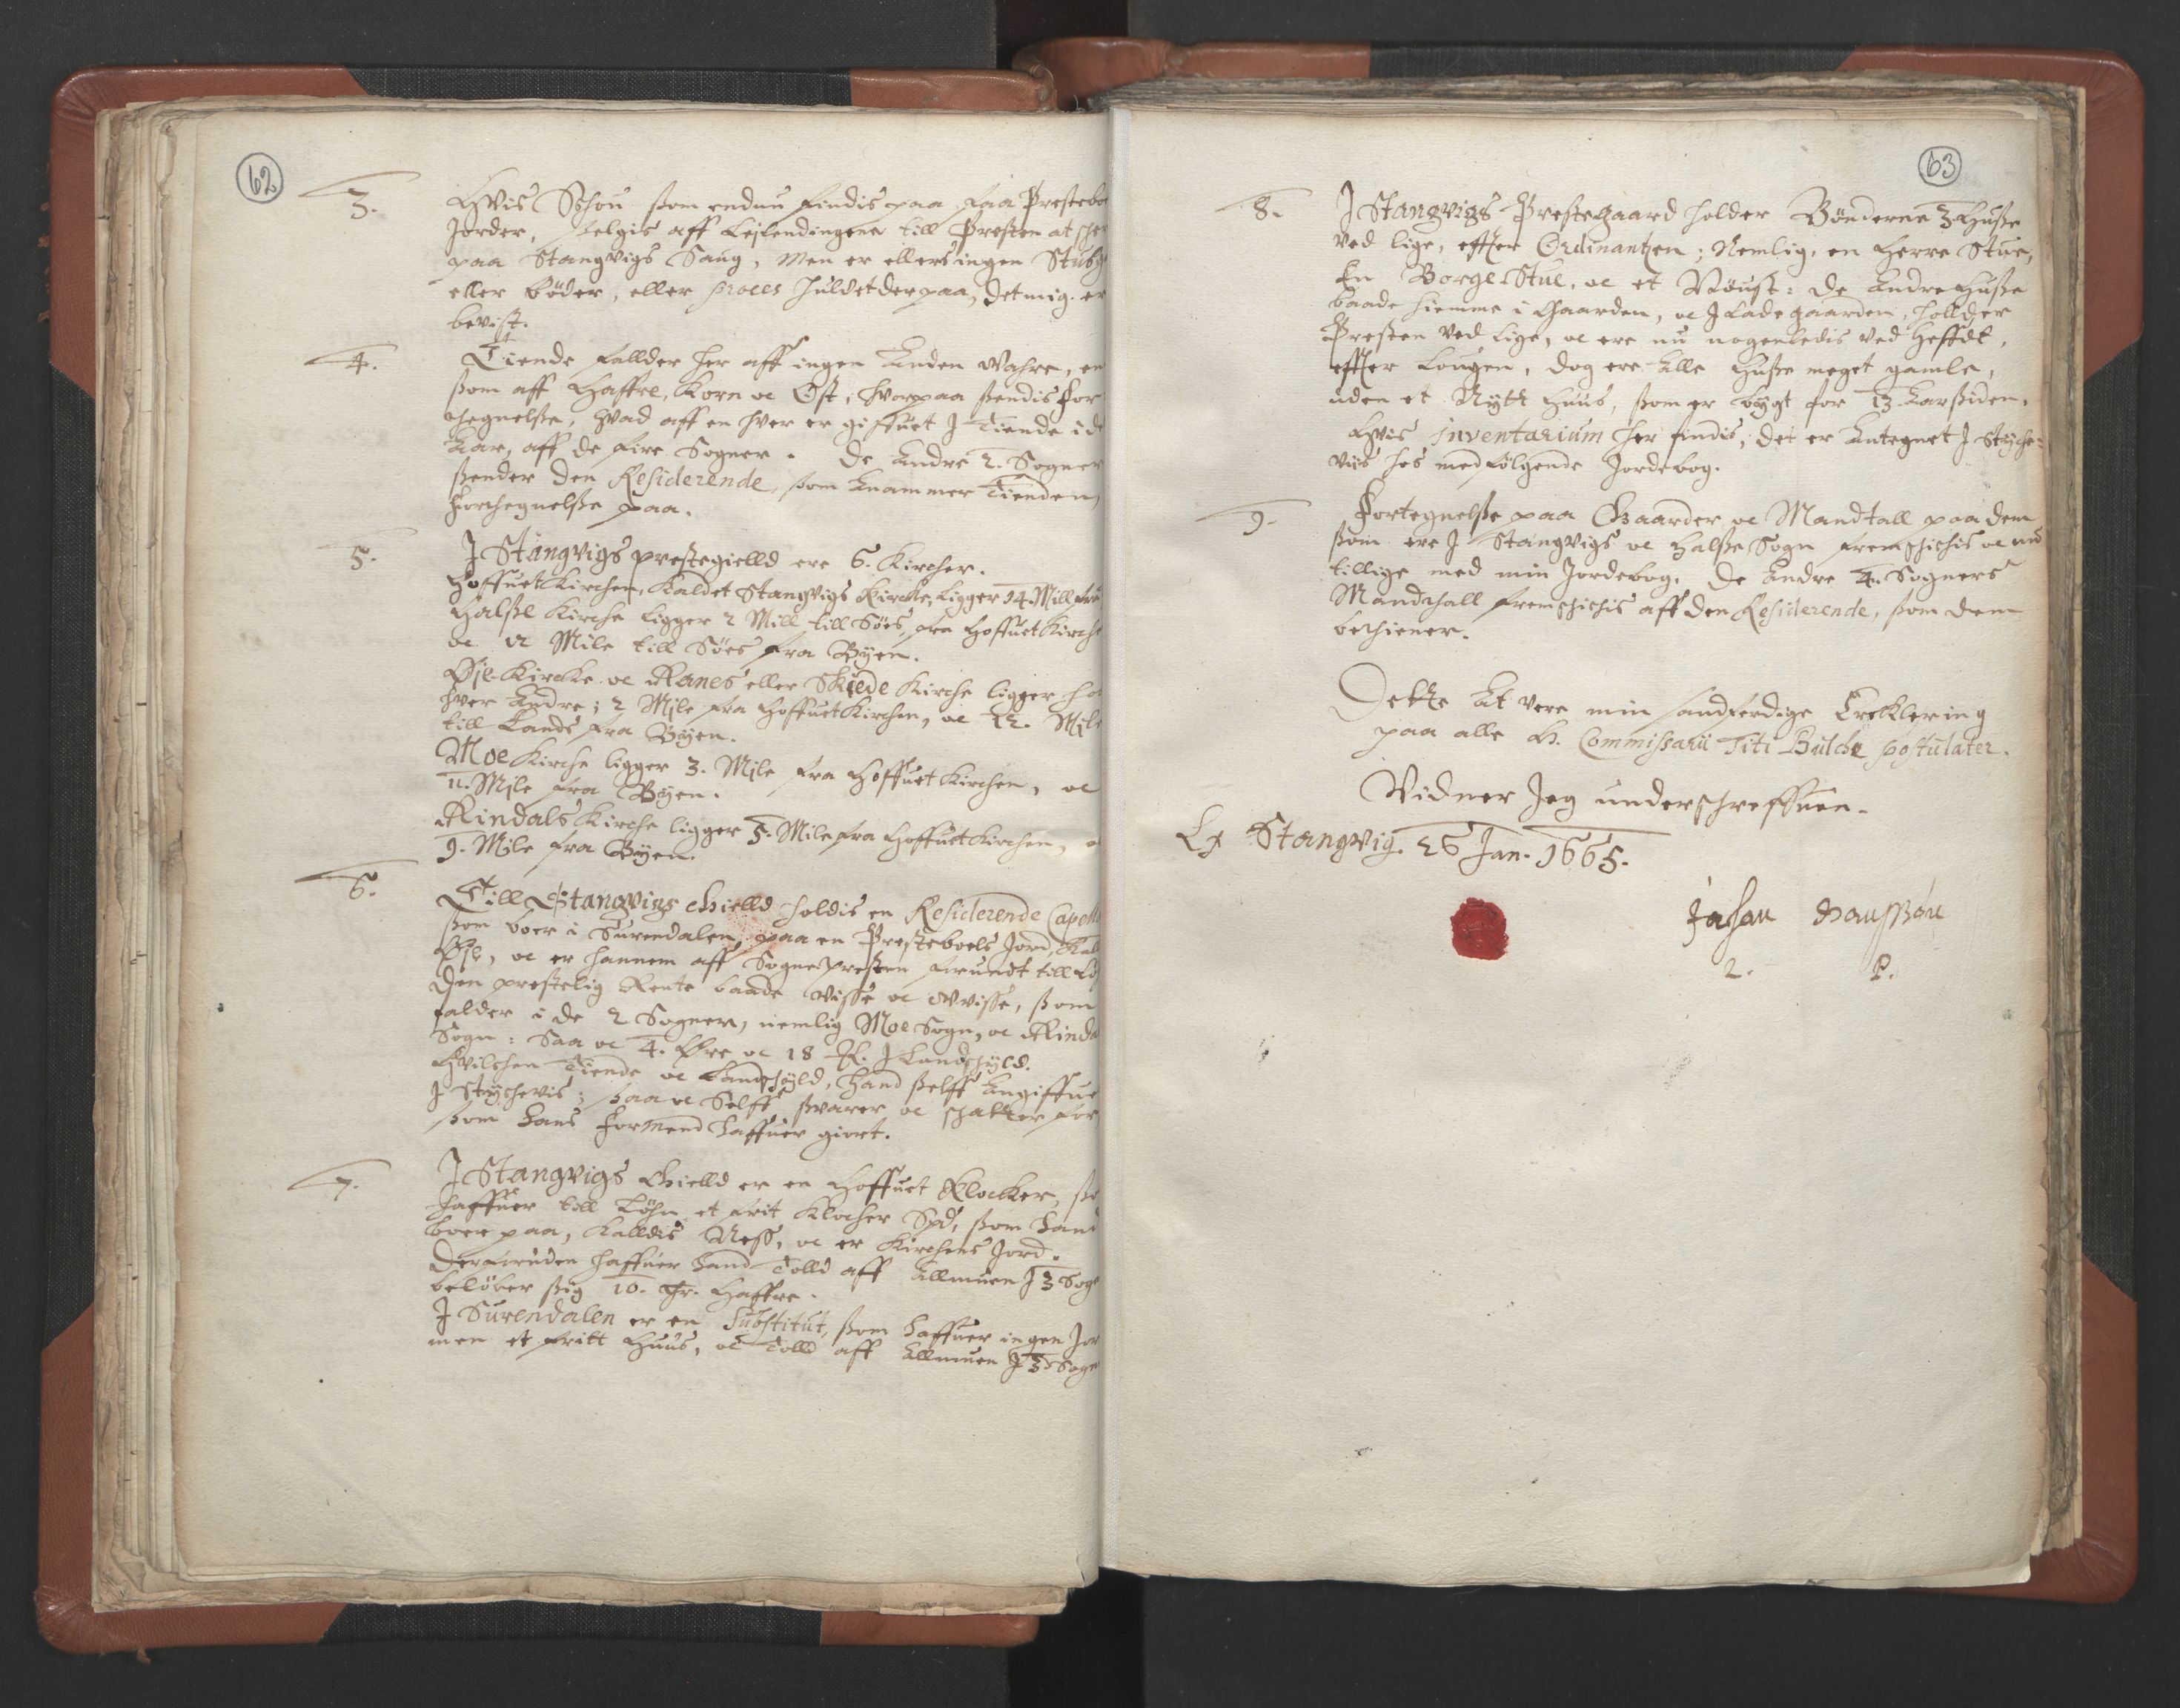 62
3. Hvis Schou som endnu findis paa faa Prestebo
Jorder, selgis aff Lejlendingene till Presten at sche
paa Stangvigs Saug, Men er ellers ingen Stubg
eller bøder, eller proces huldet derpaa, det mig er
bevist.
4. Tiende fallder her aff ingen Anden Wahre, en
som aff Haffre, Korn oc Ost, hvorpaa sendis For
thegnelsse, hvad aff en hver er giffuet J Tiende i de
Aar, aff de fire Sogner. De Andre 2. Sogner
sender den Residerende, som Anammer Tienden,
Forthegnelsse paa.
5. J Stangvigs prestegielld ere 6. Kircher.
Hoffuetkirchen, Kaldet Stangvigs Kircke, ligger 14. Mill fra
Halsse Kirche ligger 2 Mill till Søes, fra Hoffuet Kirche
oc 12 Mile till Søes fra Byen.
Øje Kircke oc Ranes eller Skiede Kirche ligger ho
hver Andre; 2 Mjle fra Hoffuet Kirchen, oc 12. Mjle
till Lands fra Byen.
Moe Kirche ligger 3. Mjle fra Hoffuet Kirchen, oc
11. Mjle fra Byen.
Rindals Kirche ligger 5. Mile fra Hoffuet Kirchen, o
9. Mile fra Byen.
6. Till Stangvigs Gielld holdis en Residerende Capell
som boer i Surendalen, paa en Presteboels Jord, Kal
Øje, oc er hannem aff Sognepresten forundt till
den prestelig Rente baade visse oc Uvisse, som
falder i de 2 Sogner, nemlig Moe Sogn, oc Rinda
Sogn: Saa oc 4. Øre oc 18 J Landschyld.
Hvilchen Tiende oc Landschyld, Hand selff Angiffue
J Stychevis; saa oc Selff svarer oc schatter for
som Hans Formend Haffuer giort.
7. J Stangvigs Gielld er en Hoffuet Klocker, so
haffuer till Løhn et frit Klocher Spd, som Hand
boer paa, Kalldis Ness, oc er Kirchens Jord.
Derforuden haffuer Hand Tolld aff Allmuen J 3 Sogn
beløber sig 10. Haffre.
J Surendalen er en Substitut, som Haffuer ingen Jor
men et fritt Huus, oc Tolld aff Allmuen J 3 Sogn
63
8. J Stangvigs Prestegaard holder Bønderne 3 Husse
ved lige, effter Ordinantzen; Nemlig, en Herre Stue,
En Borge-Stue, oc et Nøust: De Andre Husse
baade hiemme i Gaarden, oc J Ladegaarden, hollder
Presten ved Lige, oc ere nu nogenledis ved Heffdt,
effter Lougen, dog ere Alle Husse meget gamle,
uden et Nytt Huus, som er bygt for 13. Aar siden.
Hvis inventarium her findis, det er Antegnet J Styche-
viis hos medfølgende Jordebog.
9. Fortegnelsse paa Gaarder oc Mandtall paa dem
som ere J Stangvigs oc Halsse Sogn fremschichis oc nu
tillige med min Jordebog. De Andre 4. Sogners
Mandthall fremschichis aff den Residerende, som dem
bethiener.
Dette At vere min sandferdige Ercklering
paa alle H. Commissarii Titi Bulche postulater.
Vidner Jeg underschreffuen.
Ex Stangvig. 26 Jan. 1665.
Johan Hanssøn